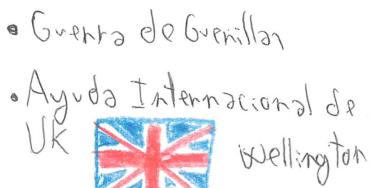 • Guerra de Guerillas
• Ayuda Internacional de
UK
wellington